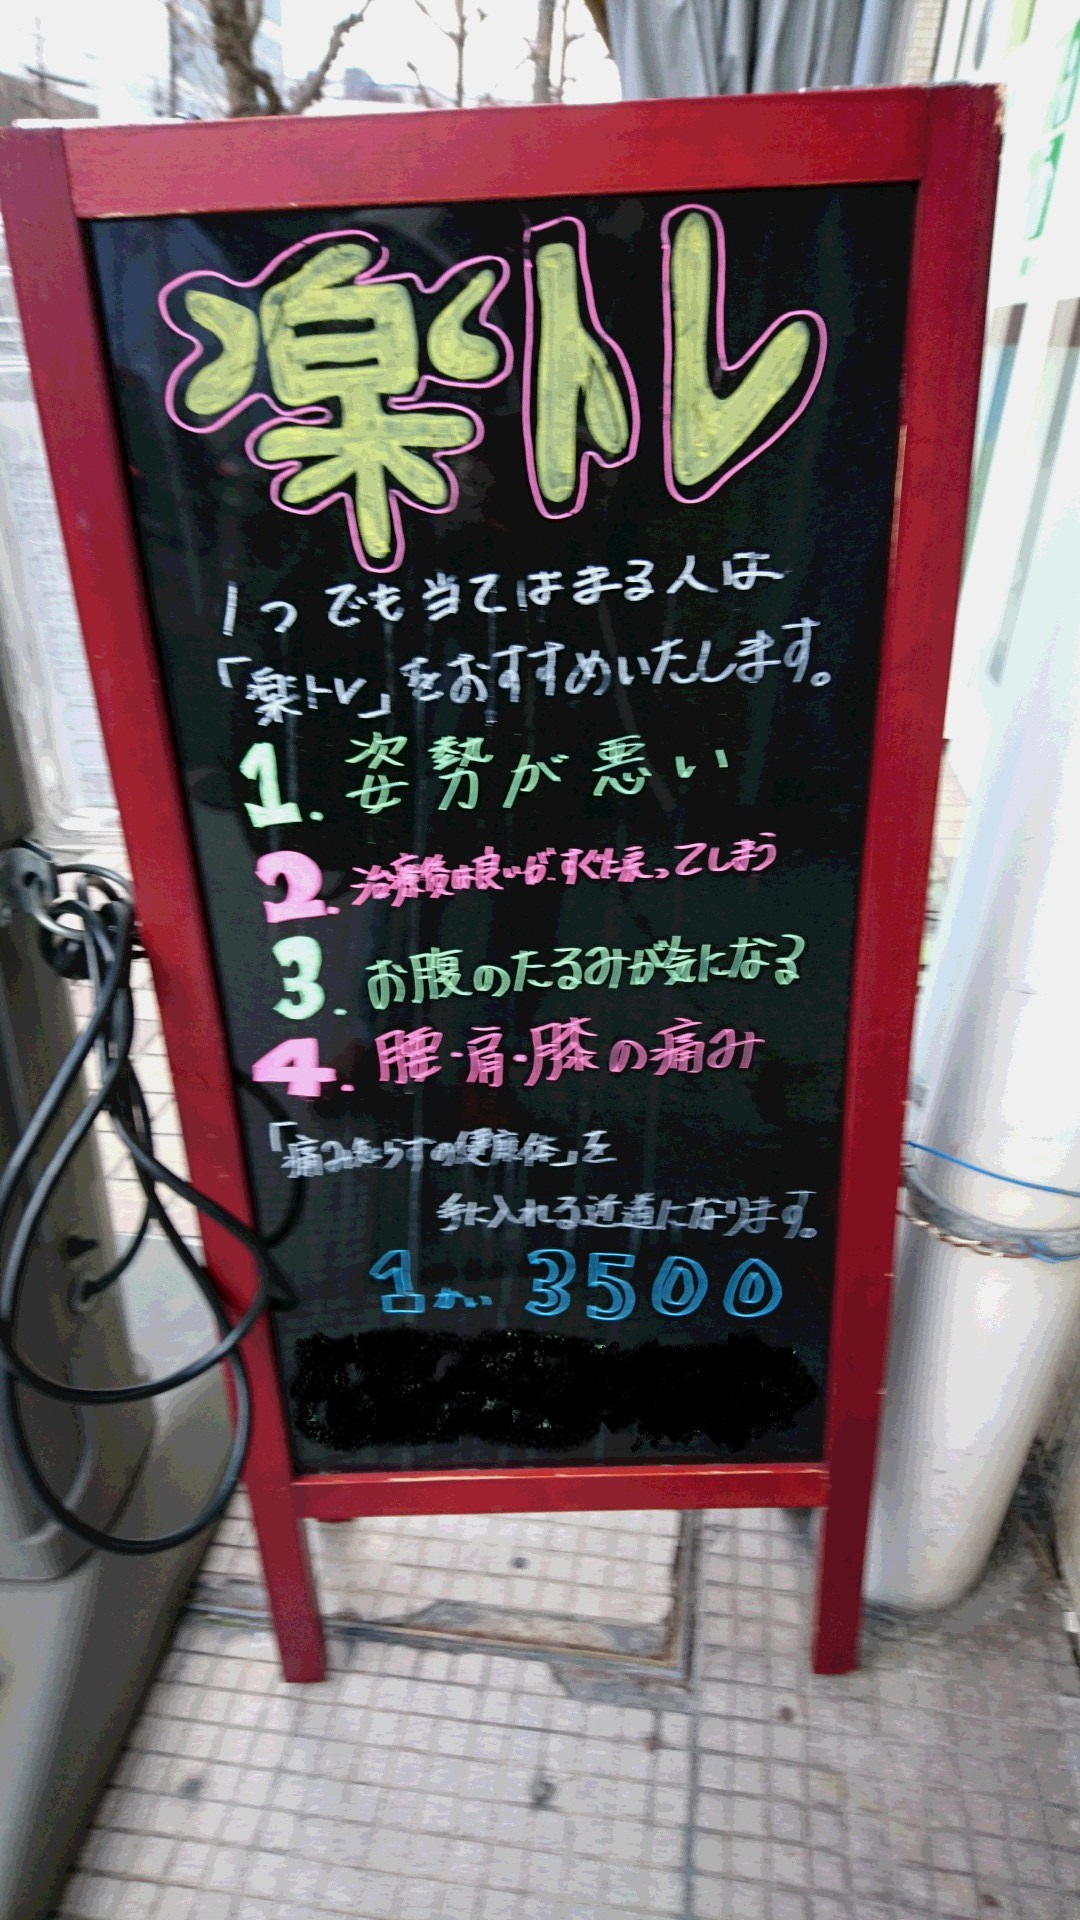 楽トレ
1つでも当てはまる人は
「楽トレ」をおすすめいたします。
1. 姿勢が悪い
2. 治療後は良いが、すぐに戻ってしまう
3. お腹のたるみが気になる
4. 腰・肩・膝の痛み
「痛み知らずの健康体」を
手に入れる近道になります。
1かい 3500